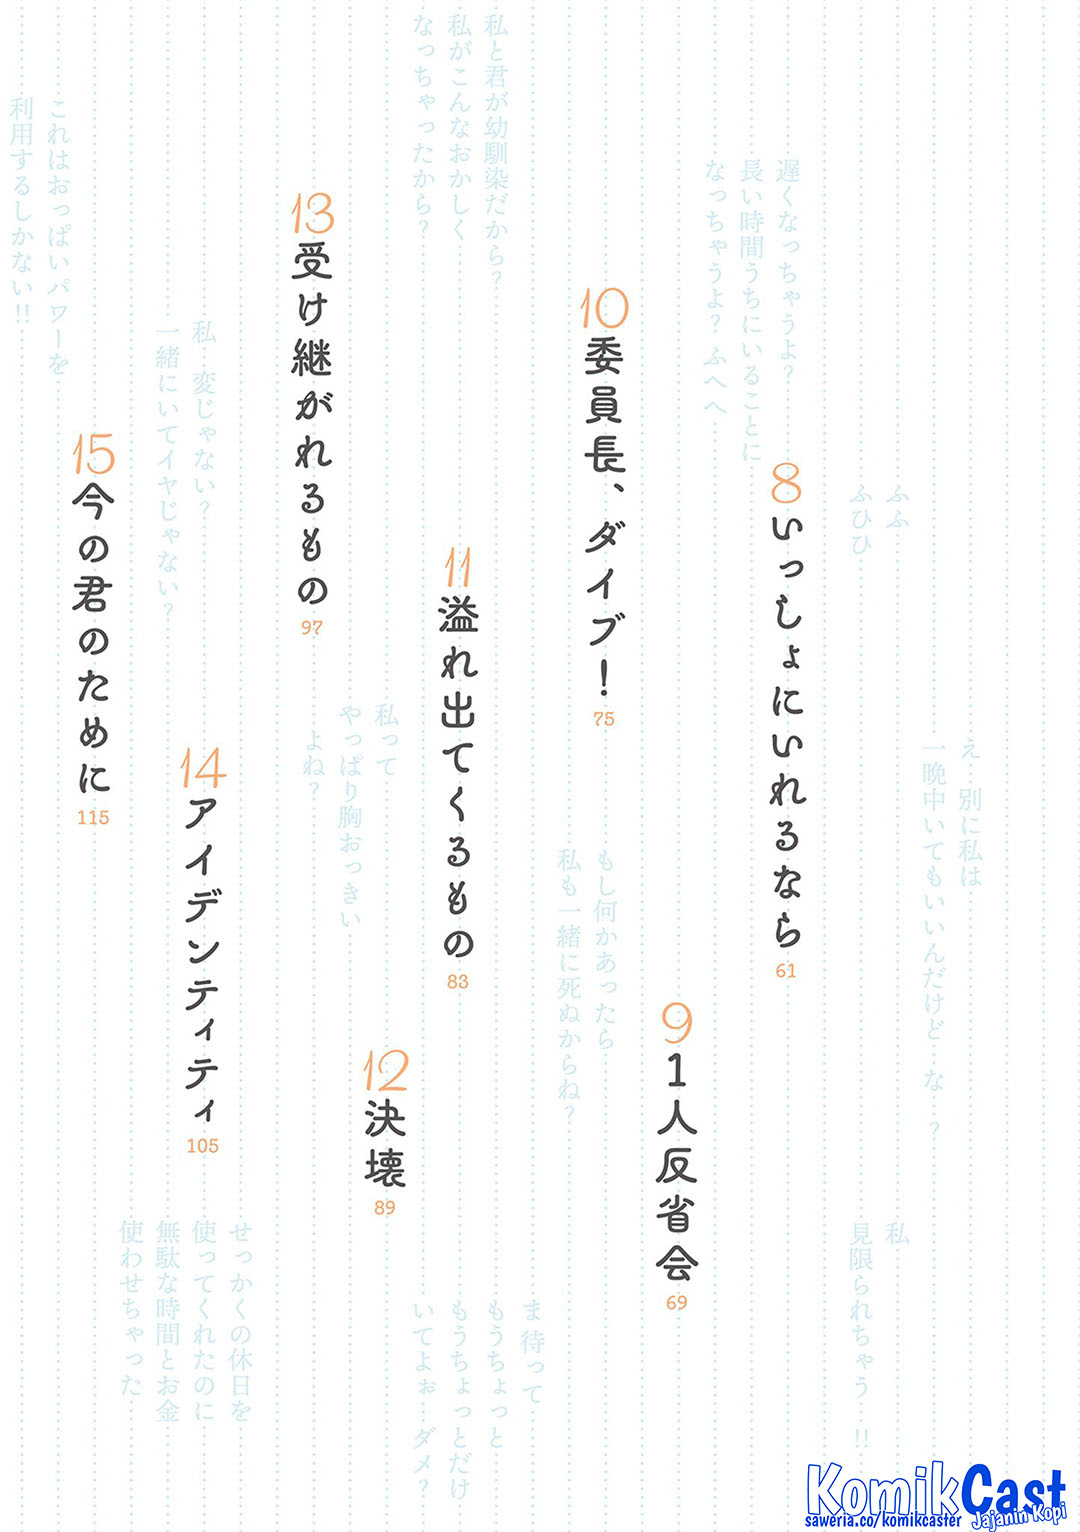 え 別に私は
一晩中いてもいいんだけど な?
私
見限られちゃう…!!
ふふ
ふひひ
8
いっしょにいれるなら
61
遅くなっちゃうよ?
長い時間うちにいることに
なっちゃうよ? ふへへ…
9
1人反省会
69
10
委員長、ダイブ!
75
もし何かあったら
私も一緒に死ぬからね?
私と君が幼馴染だから?
私がこんなおかしく
なっちゃったから?
11
溢れ出てくるもの
83
ま 待って…
もうちょっと…
もうちょっとだけ
いてよぉ…ダメ?
12
決壊
89
私って
やっぱり胸おっきい
よね?
13
受け継がれるもの
97
14
アイデンティティ
105
私…変じゃない?
一緒にいてイヤじゃない?
せっかくの休日を…
使ってくれたのに
無駄な時間とお金…
使わせちゃった…
15
今の君のために
115
これはおっぱいパワーを
利用するしかない!!
KomikCast
saweria.co/komikcaster
Jajanin Kopi